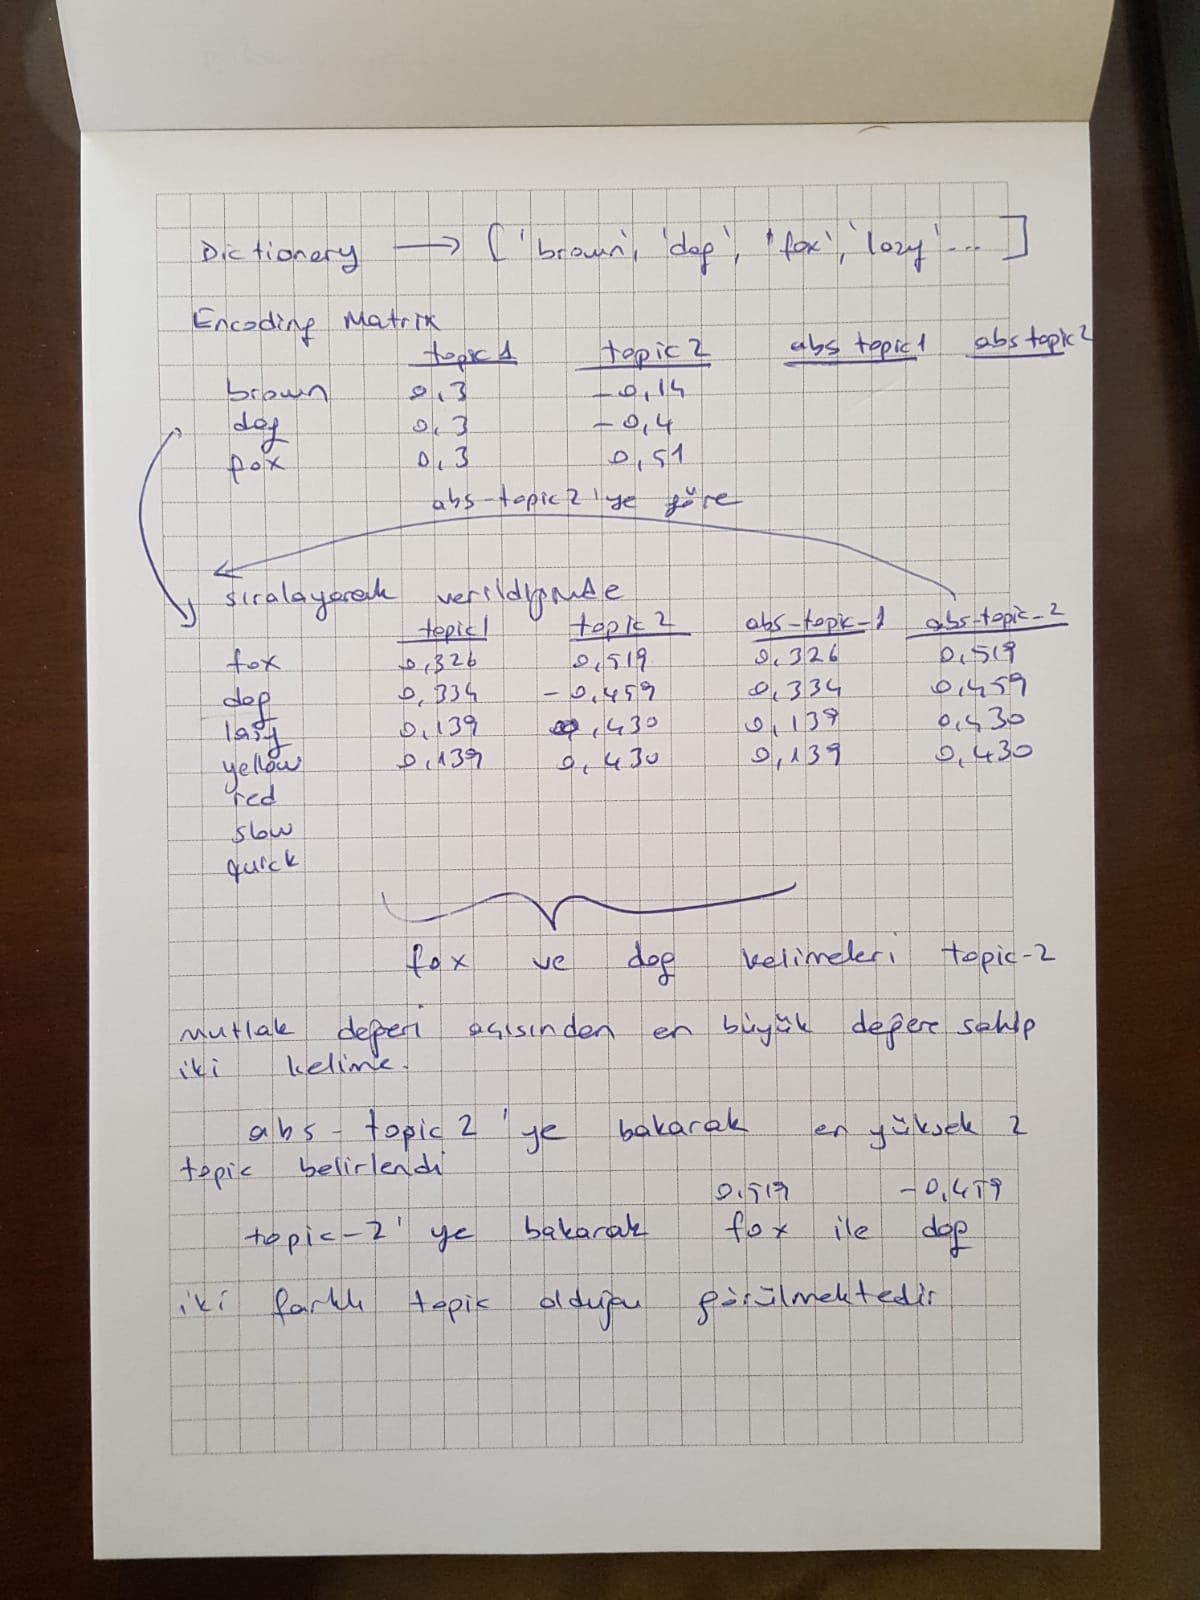 Dictionery → ['brown', 'dog', 'fox', 'lazy'... ]
Encoding Matrix
topic 1 topic 2 abs topic1 abs topic2
brown 0,3 -0,14
dog 0,3 -0,4
fox 0,3 0,51
abs-topic2'ye göre
sıralayarak verildiğinde
topic1 topic 2 abs-topic-1 abs-topic-2
fox 0,326 0,519 0,326 0,519
dog 0,334 -0,459 0,334 0,459
lazy 0,139 ,430 0,139 0,430
yellow 0,139 0,430 0,139 0,430
red
slow
quick
fox ve dog kelimeleri topic-2
mutlak değeri açısından en büyük değere sahip
iki kelime.
abs-topic2'ye bakarak en yüksek 2
topic belirlendi
0,519 -0,459
topic-2'ye bakarak fox ile dog
iki farklı topic olduğu görülmektedir